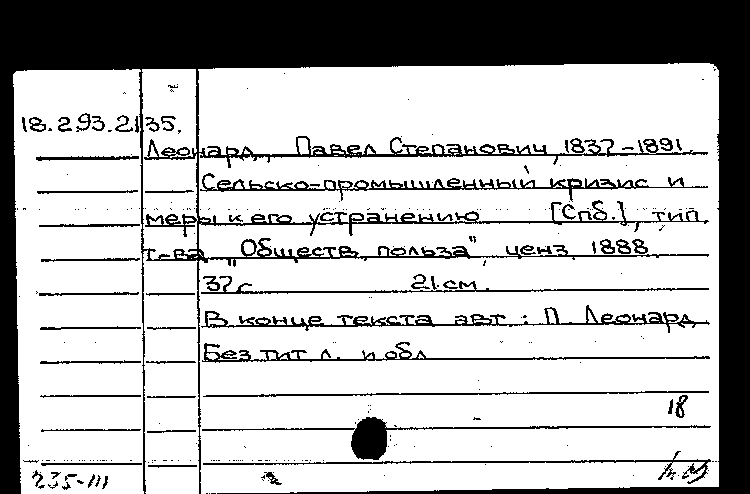 18.293.2135.
Леонард, Павел Степанович, 1837-1891.
Сельско-промышленный кризис и
меры к его устранению [Спб.], тип.
т-ва "Обществ. польза", ценз. 1888.
37 с. 21 см.
В конце текста авт.: П. Леонард
Без тит. л. и обл.
18
235-III